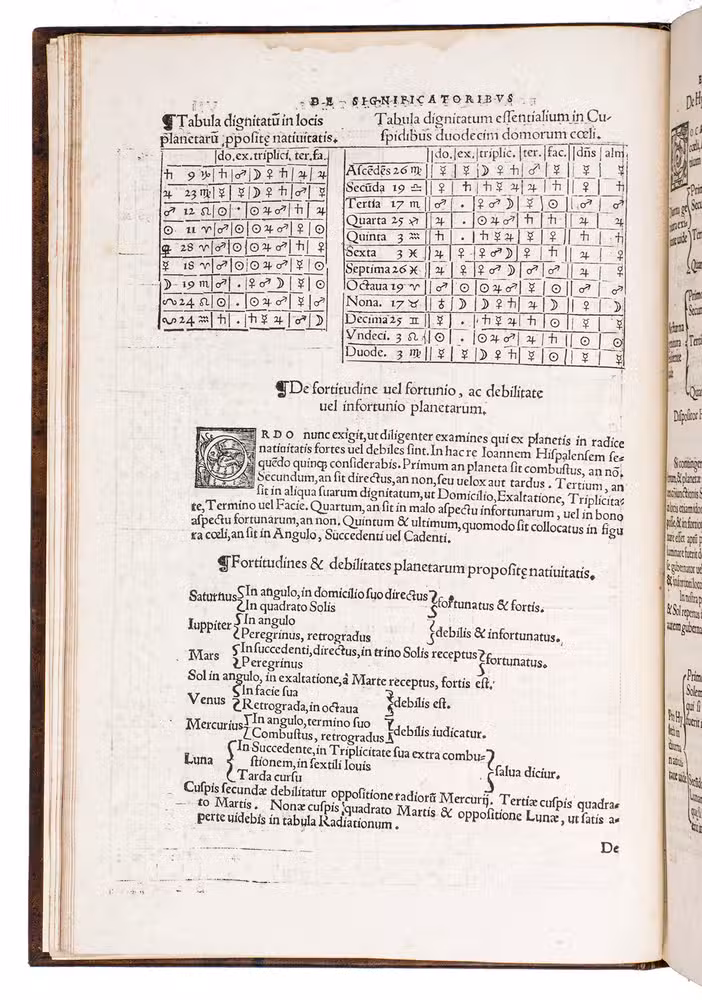 DE SIGNIFICATORIBVS
¶Tabula dignitatū in locis
planetarū ꝓpositę natiuitatis.
do. ex. triplici. ter. fa.
♄ 9 ♑ | ♄ | ♂ | ☽ ♀ ♄ | ♃ | ♃
♃ 23 ♍ | ☿ | ☿ | ☽ ♀ ♄ | ♂ | ☿
♂ 12 ♌ | ☉ | . | ☉ ♃ ♂ | ♄ | ♃
☉ 11 ♈ | ♂ | ☉ | ☉ ♃ ♂ | ♀ | ☉
♀ 28 ♈ | ♂ | ☉ | ☉ ♃ ♂ | ♄ | ♀
☿ 18 ♈ | ♂ | ☉ | ☉ ♃ ♂ | ☿ | ☉
☽ 19 ♏ | ♂ | . | ♀ ♂ ☽ | ☿ | ☉
24 ♌ | ☉ | . | ☉ ♃ ♂ | ☿ | ♂
24 ♒ | ♄ | . | ♄ ☿ ♃ | ♂ | ☽
Tabula dignitatum essentialium in Cu-
spidibus duodecim domorum cœli.
do. | ex. | triplic. | ter. | fac. | dñs | alm
Ascēdēs 26 ♍ | ☿ | ☿ | ☽ ♀ ♄ | ♂ | ☿ | ☿ | ☿
Secūda 19 ♎ | ♀ | ♄ | ♄ ☿ ♃ | ♃ | ♄ | ♀ | ♄
Tertia 17 ♏ | ♂ | . | ♀ ♂ ☽ | ☿ | ☉ | ♂ | ♂
Quarta 25 ♐ | ♃ | . | ☉ ♃ ♂ | ♄ | ♄ | ♃ | ♃
Quinta 3 ♒ | ♄ | . | ♄ ☿ ♃ | ☿ | ♀ | ♄ | ♄
Sexta 3 ♓ | ♃ | ♀ | ♀ ♂ ☽ | ♀ | ♄ | ♃ | ♀
Septima 26 ♓ | ♃ | ♀ | ♀ ♂ ☽ | ♂ | ♂ | ♃ | ♀
Octaua 19 ♈ | ♂ | ☉ | ☉ ♃ ♂ | ☿ | ☉ | ♂ | ♂
Nona. 17 ♉ | ♀ | ☽ | ☽ ♀ ♄ | ♃ | ☽ | ♀ | ☽
Decima 25 ♊ | ☿ | . | ♄ ☿ ♃ | ♄ | ☉ | ☿ | ☿
Vndeci. 3 ♌ | ☉ | . | ☉ ♃ ♂ | ♄ | ♄ | ☉ | ☉
Duode. 3 ♍ | ☿ | ☿ | ☽ ♀ ♄ | ☿ | ☉ | ☿ | ☿
¶De fortitudine uel fortunio, ac debilitate
uel infortunio planetarum.
ORDO nunc exigit, ut diligenter examines qui ex planetis in radice
natiuitatis fortes uel debiles sint. In hac re Ioannem Hispalensem se-
quēdo quinq; considerabis. Primum an planeta sit combustus, an nō.
Secundum, an sit directus, an non, seu uelox aut tardus. Tertium, an
sit in aliqua suarum dignitatum, ut Domicilio, Exaltatione, Triplicita-
te, Termino uel Facie. Quartum, an sit in malo aspectu infortunarum, uel in bono
aspectu fortunarum, an non. Quintum & ultimum, quomodo sit collocatus in figu
ra cœli, an sit in Angulo, Succedenti uel Cadenti.
¶Fortitudines & debilitates planetarum propositę natiuitatis.
Saturnus { In angulo, in domicilio suo directus
In quadrato Solis } fortunatus & fortis.
Iuppiter { In angulo
Peregrinus, retrogradus } debilis & infortunatus.
Mars { In succedenti, directus, in trino Solis receptus
Peregrinus } fortunatus.
Sol in angulo, in exaltatione, à Marte receptus, fortis est.
Venus { In facie sua
Retrograda, in octaua } debilis est.
Mercurius { In angulo, termino suo
Combustus, retrogradus } debilis iudicatur.
Luna { In Succedente, in Triplicitate sua extra combu-
stionem, in sextili Iouis
Tarda cursu } salua dicitur.
Cuspis secundæ debilitatur oppositione radiorū Mercurij. Tertiæ cuspis quadra-
to Martis. Nonæ cuspis quadrato Martis & oppositione Lunæ, ut satis a-
perte uidebis in tabula Radiationum.
De